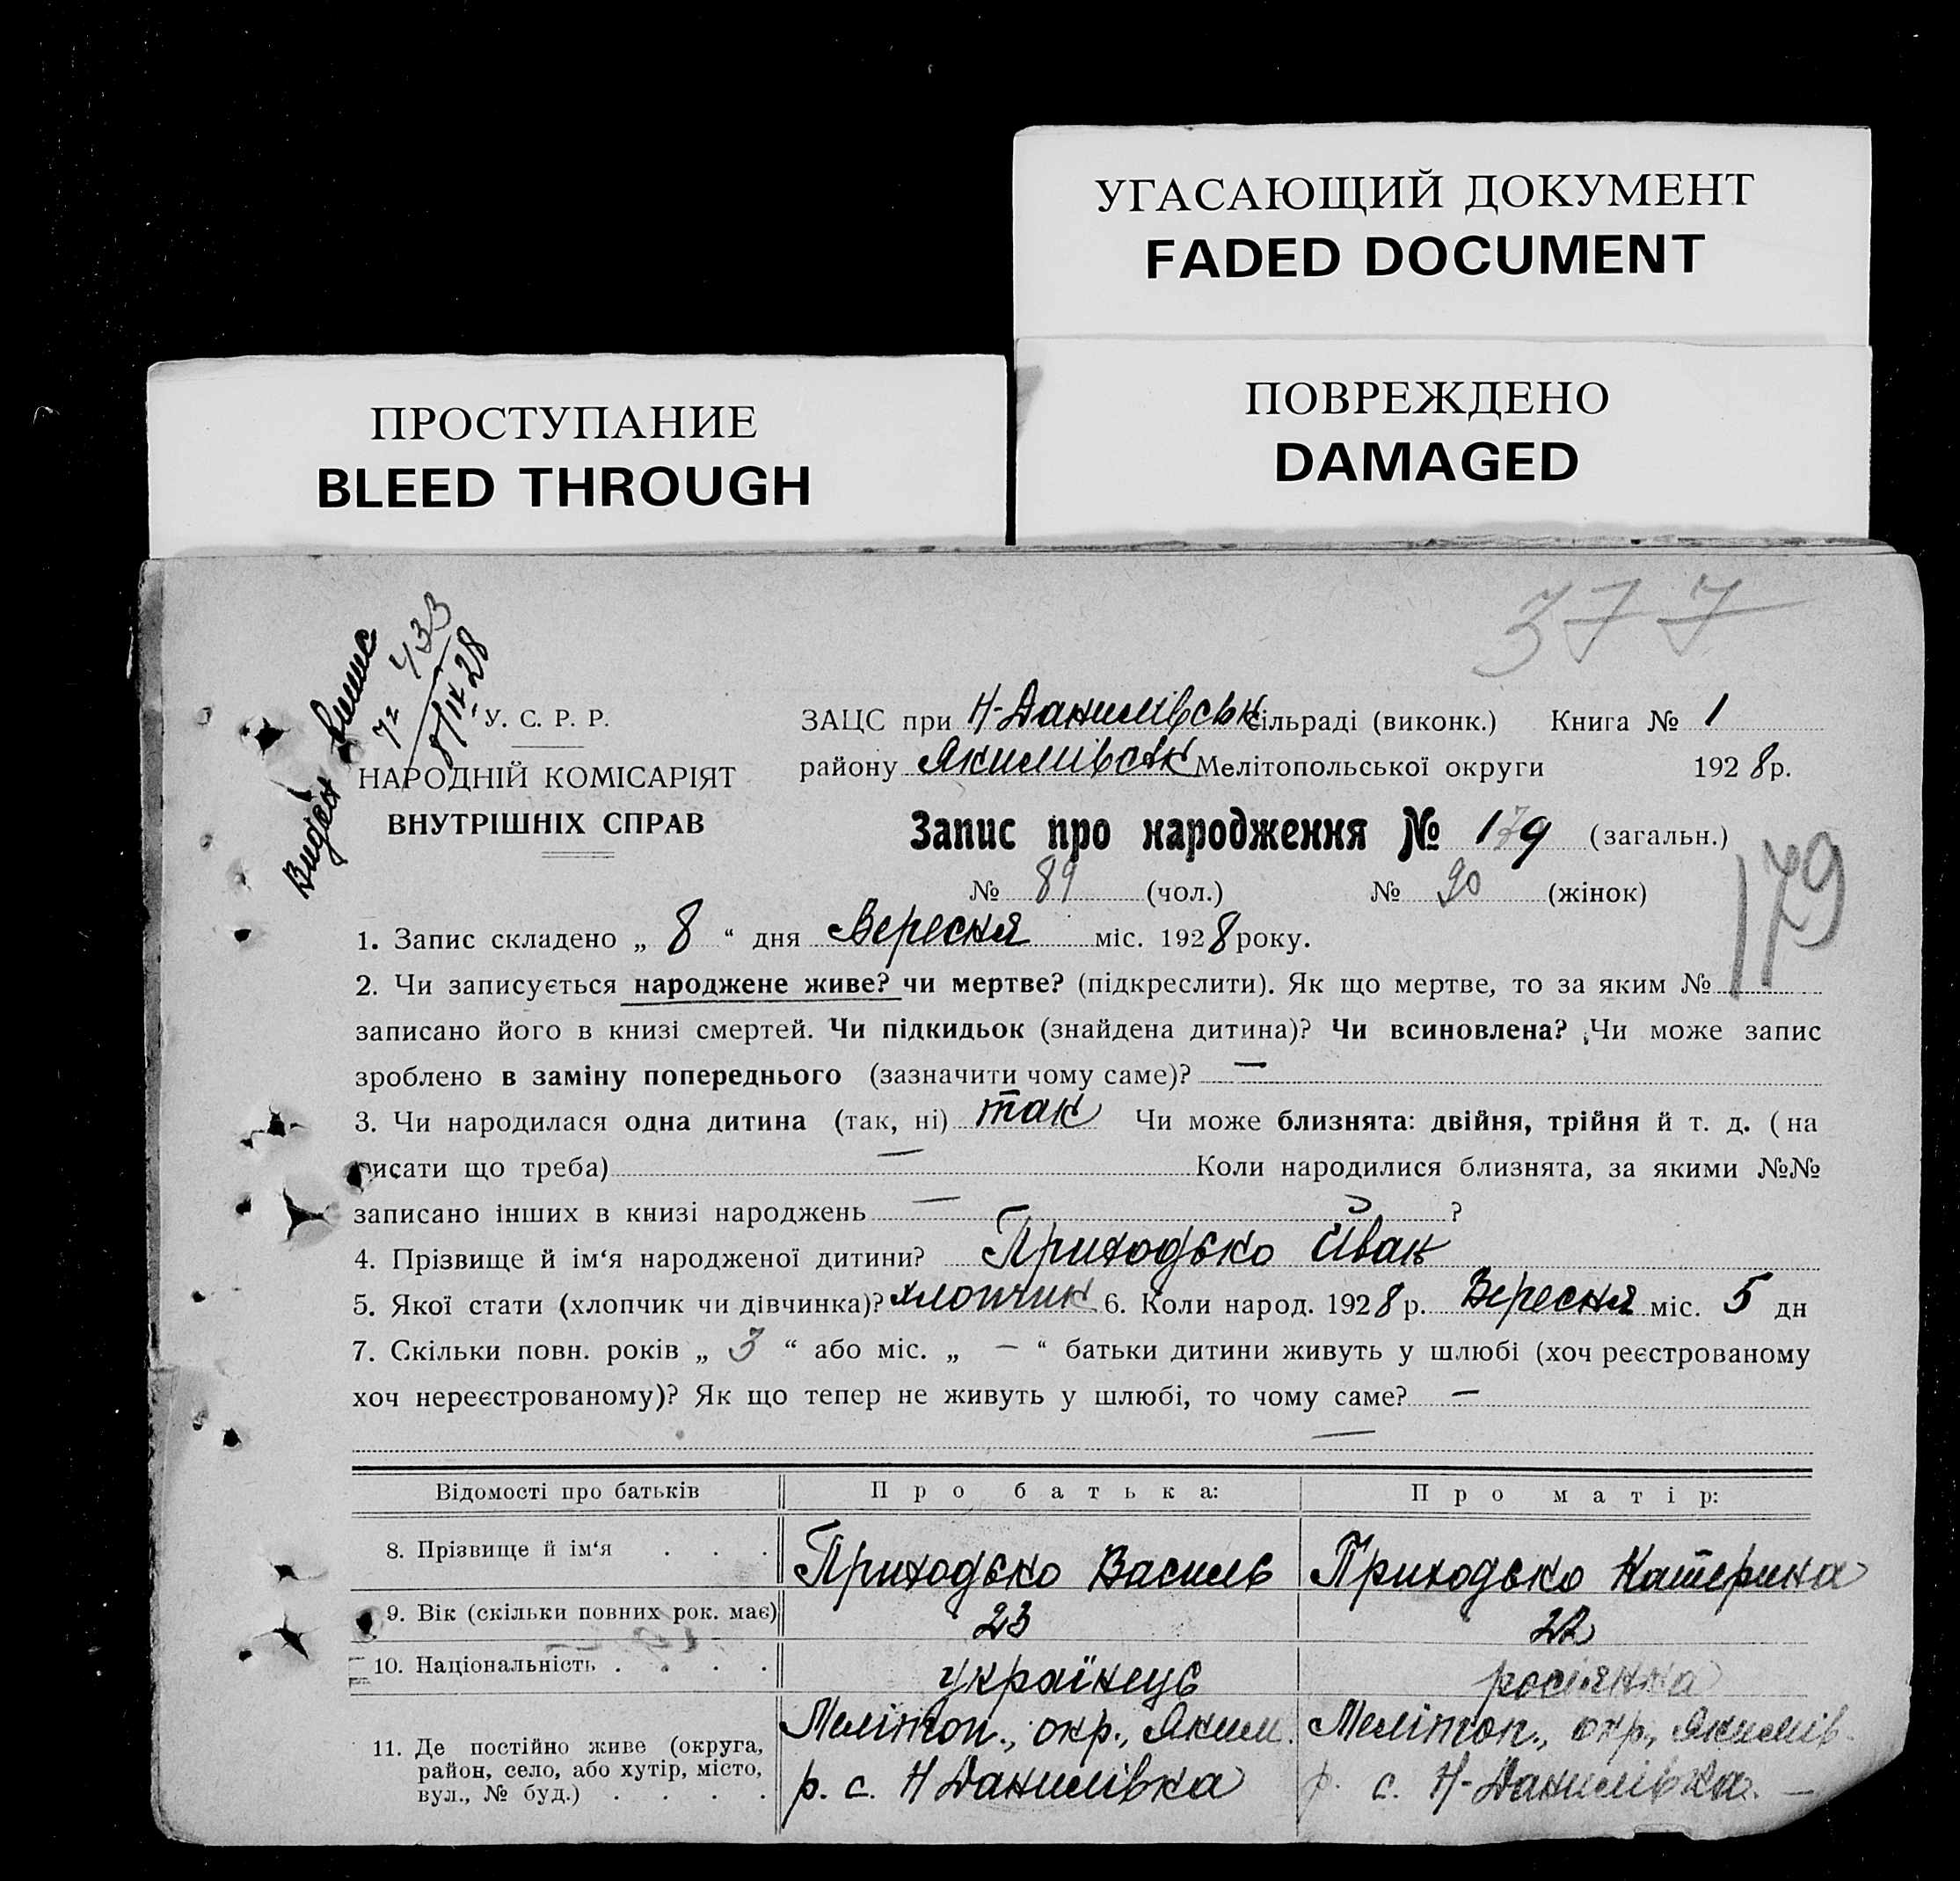 УГАСАЮЩИЙ ДОКУМЕНТ
FADED DOCUMENT
ПОВРЕЖДЕНО
DAMAGED
ПРОСТУПАНИЕ
BLEED THROUGH
377
Видан выпис
433
8/IX 28
У. С. Р. Р.
НАРОДНІЙ КОМІСАРІЯТ
ВНУТРІШНІХ СПРАВ
ЗАЦС при Н-Данилівськ сільраді (виконк.) Книга № 1
району Якимівськ Мелітопольської округи 1928 р.
Запис про народження № 179 (загальн.)
179
№ 89 (чол.) № 90 (жінок)
1. Запис складено „ 8 “ дня Вересня міс. 1928 року.
2. Чи записується народжене живе? чи мертве? (підкреслити). Як що мертве, то за яким №
записано його в книзі смертей. Чи підкидьок (знайдена дитина)? Чи всиновлена? Чи може запис
зроблено в заміну попереднього (зазначити чому саме)? —
3. Чи народилася одна дитина (так, ні) так Чи може близнята: двійня, трійня й т. д. (на
писати що треба) — Коли народилися близнята, за якими №№
записано інших в книзі народжень — ?
4. Прізвище й ім‘я народженої дитини? Приходько Иван
5. Якої стати (хлопчик чи дівчинка)? хлопчик 6. Коли народ. 1928 р. Вересня міс. 5 дн
7. Скільки повн. років „ 3 “ або міс. „ — “ батьки дитини живуть у шлюбі (хоч реєстрованому
хоч нереєстрованому)? Як що тепер не живуть у шлюбі, то чому саме? —
—
Відомості про батьків Про батька: Про матір:
8. Прізвище й ім‘я . . . Приходько Василь Приходько Катерина
9. Вік (скільки повних рок. має) 23 22
10. Національність . . . . українець росіянка
11. Де постійно живе (округа, Мелітоп., окр., Яким. Мелітоп., окр., Якимів-
район, село, або хутір, місто, р. с. Н Данилівка р. с. Н-Данилівка. —
вул., № буд.) . . . .